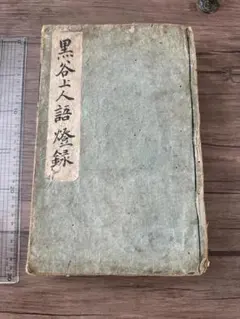 黒谷上人語燈録